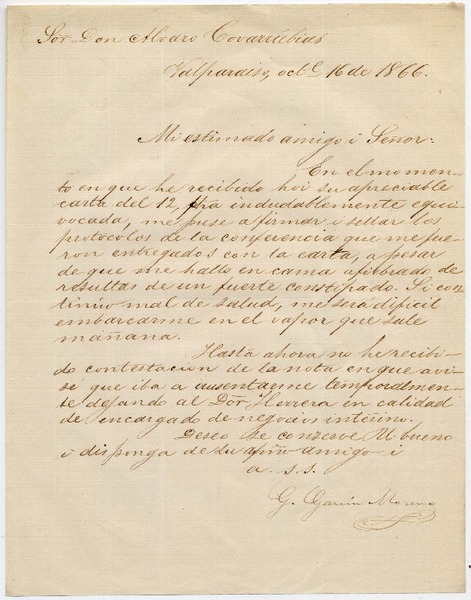 Sor Don Alvaro Covarrubias
Valparaiso, octe 16 de 1866.
Mi estimado amigo i Señor:
En el momen-
to en que he recibido hoi su apreciable
carta del 12, fha indudablemente equi-
vocada, me puse a firmar i sellar los
protócolos de la conferencia que me fue-
ron entregados con la carta, a pesar
de que me hallo en cama afiebrado de
resultas de un fuerte constipado. Si con-
tinúo mal de salud, me será difícil
embarcarme en el vapor que sale
mañana.
Hasta ahora no he recibi-
do contestacion de la nota en que avi-
sé que iba a ausentarme temporalmen-
te dejando al Dor Herrera en calidad
de encargado de negocios interino.
Deseo se conserve U. bueno
i disponga de su afmo amigo i
a. s. s.
G. García Moreno